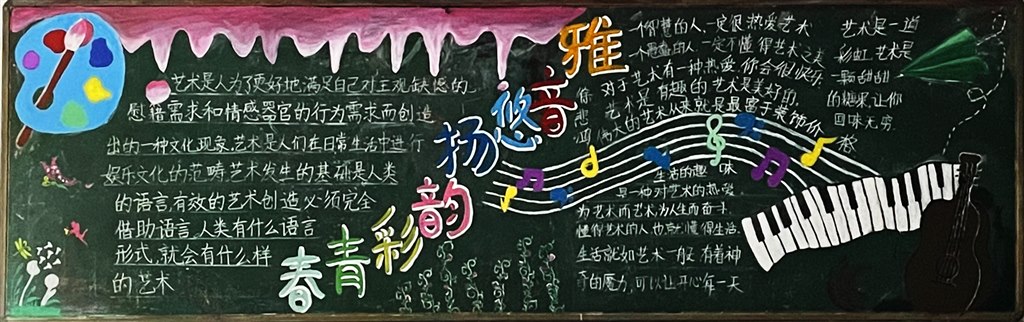 艺术是人为了便好地满足自己对主观缺憾的
慰藉需求和情感器官的行为需求而创造
出的一种文化现象,艺术是人们在日常生活中进行
娱乐文化的范畴,艺术发生的基础是人类
的语言,有效的艺术创造必须完全
借助语言,人类有什么语言
形式,就会有什么样
的艺术
雅
音
悠
扬
韵
彩
青
春
一个智慧的人,一定很热爱艺术
一个愚蠢的人,一定不懂得艺术之美
对于艺术有一种热爱,你会很快乐
艺术是有趣的艺术是美好的,
伟大的艺术从来就是最富于装饰价
艺术是一道
彩虹,艺术是
一颗甜甜
的糖果,让你
回味无穷.
生活的趣味
是一种对艺术的热爱
为艺术而艺术,为人生而奋斗.
懂得艺术的人也就懂得生活.
生活就如艺术一般有着神
奇的魔力,可以让开心每一天